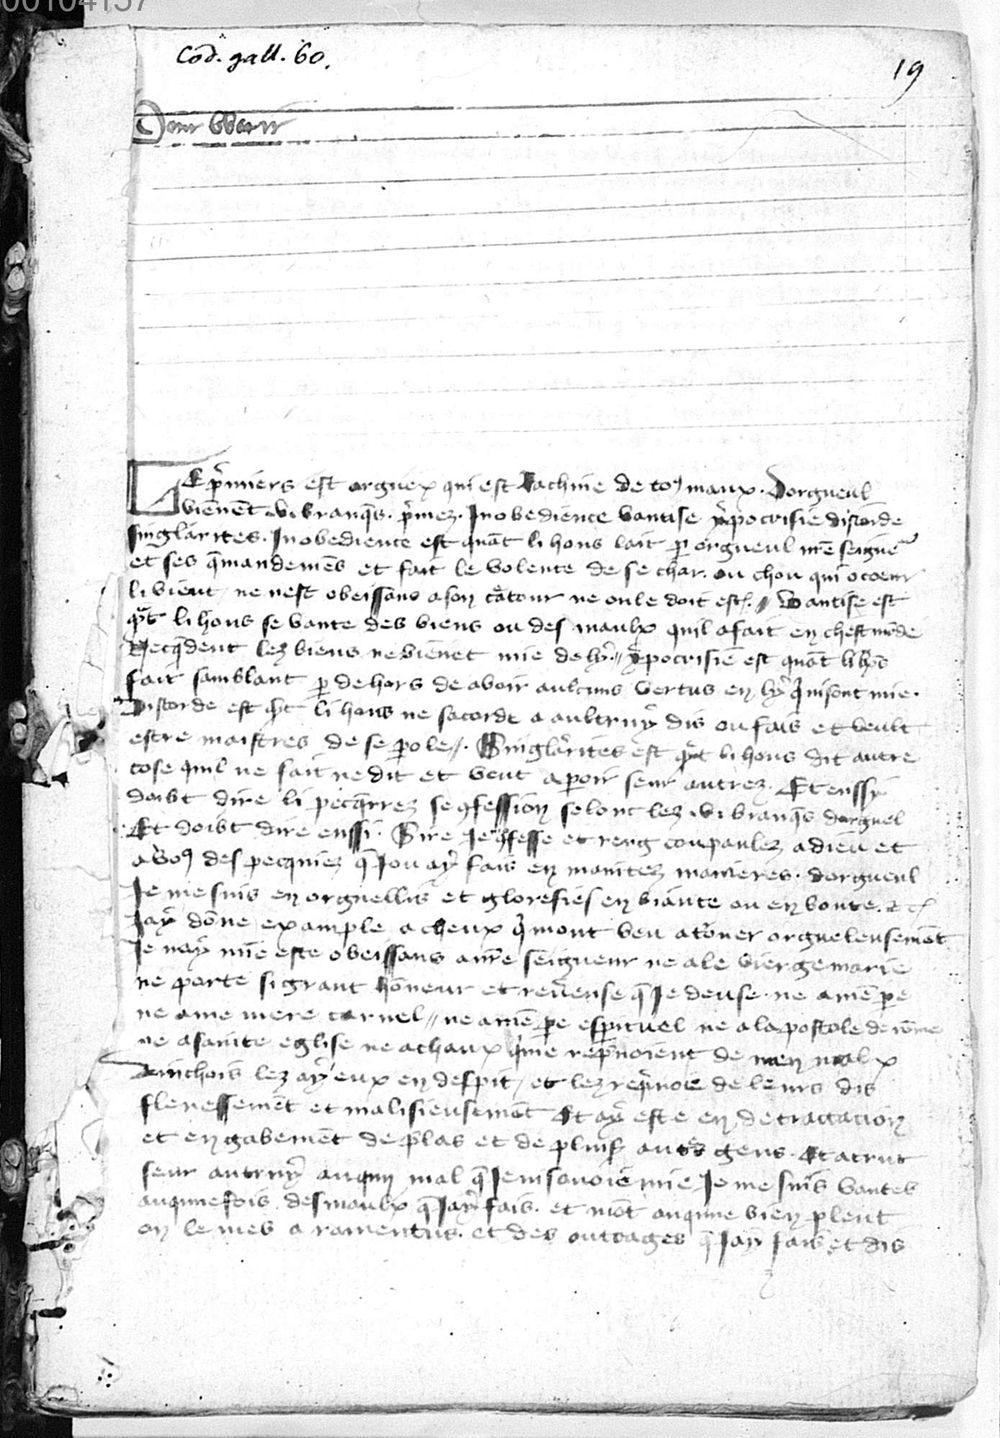 00104157
Cod. gall. 60.
19
Le p̄miers est orguex qui est Rachine de toꝰ maux. Dorgueul
vienēt .vi. branq̄s. p̄miez. Inobedience vantise ypocrisie discorde
singlarites. Inobedience est quāt li hons lait p̄ orgueul nr̄e seigneᵘʳ
et ses ꝯmandemēs et fait le volente de se char. ou chou qui o coeur
li vient / ne nest obeissans a son c̄atour ne on le doit est̄. // Vantise est
q̄t li hons se vante des biens ou des maulx quil a fait en chest mōde
li biens ne viēnet mie de ly. // ypocrisie est quāt li hōs
fait samblant p̄ dehors de avoir aulcuns vertus en ly q̄ ni sont mie.
Discorde est q̄t li hons ne sacorde a aultruy dis ou fais et veult
estre maistres de se pole //. Singlarites est q̄t li hons dit autre
cose quil ne fait ne dit et veut aparoir seur autrez. Et enssy
doibt dire li pecqerrez se ꝯfession selonc lez .vi. branq̄s dorguel
Et doibt dire enssi. Sire Je ꝯfesse et reng coupaulez a dieu et
a voꝰ des pecquiez q̄ Jou ay fais en maintez manieres. dorgueul
Je me suis en orguellis et glorefies en biaute ou en bonte. etc
Jay dōne example a cheux q̄ mont veu atōner orgueleusemēt
Je nay mie este obeissans a nr̄e seigneur ne a le vierge marie
ne porte si grant hōneur et rev̄ense q̄ Je deuse. ne a mē pe
ne a me mere carnel // ne a mē pe esprituel ne a lapostole de rōme
ne a sainte eglise ne a chaux q̄ me rep̄noient de men malx
Ainchois lez ay eux en despit / et lez rep̄noie de leurs dis
flenessemēt et malisieusemēt Et ay este en detractation
et en gabemēt de p̄las et de pluiꝯ autᵉs gens. Et acruc
seur autruy auqun mal q̄ Je ni savoie mie Je me suis vantes
auqunefois des maulx q̄ Jay fais. et mōt auqune bien pleut
on le mes a ramentus. et des outrages q̄ Jay fais et dis